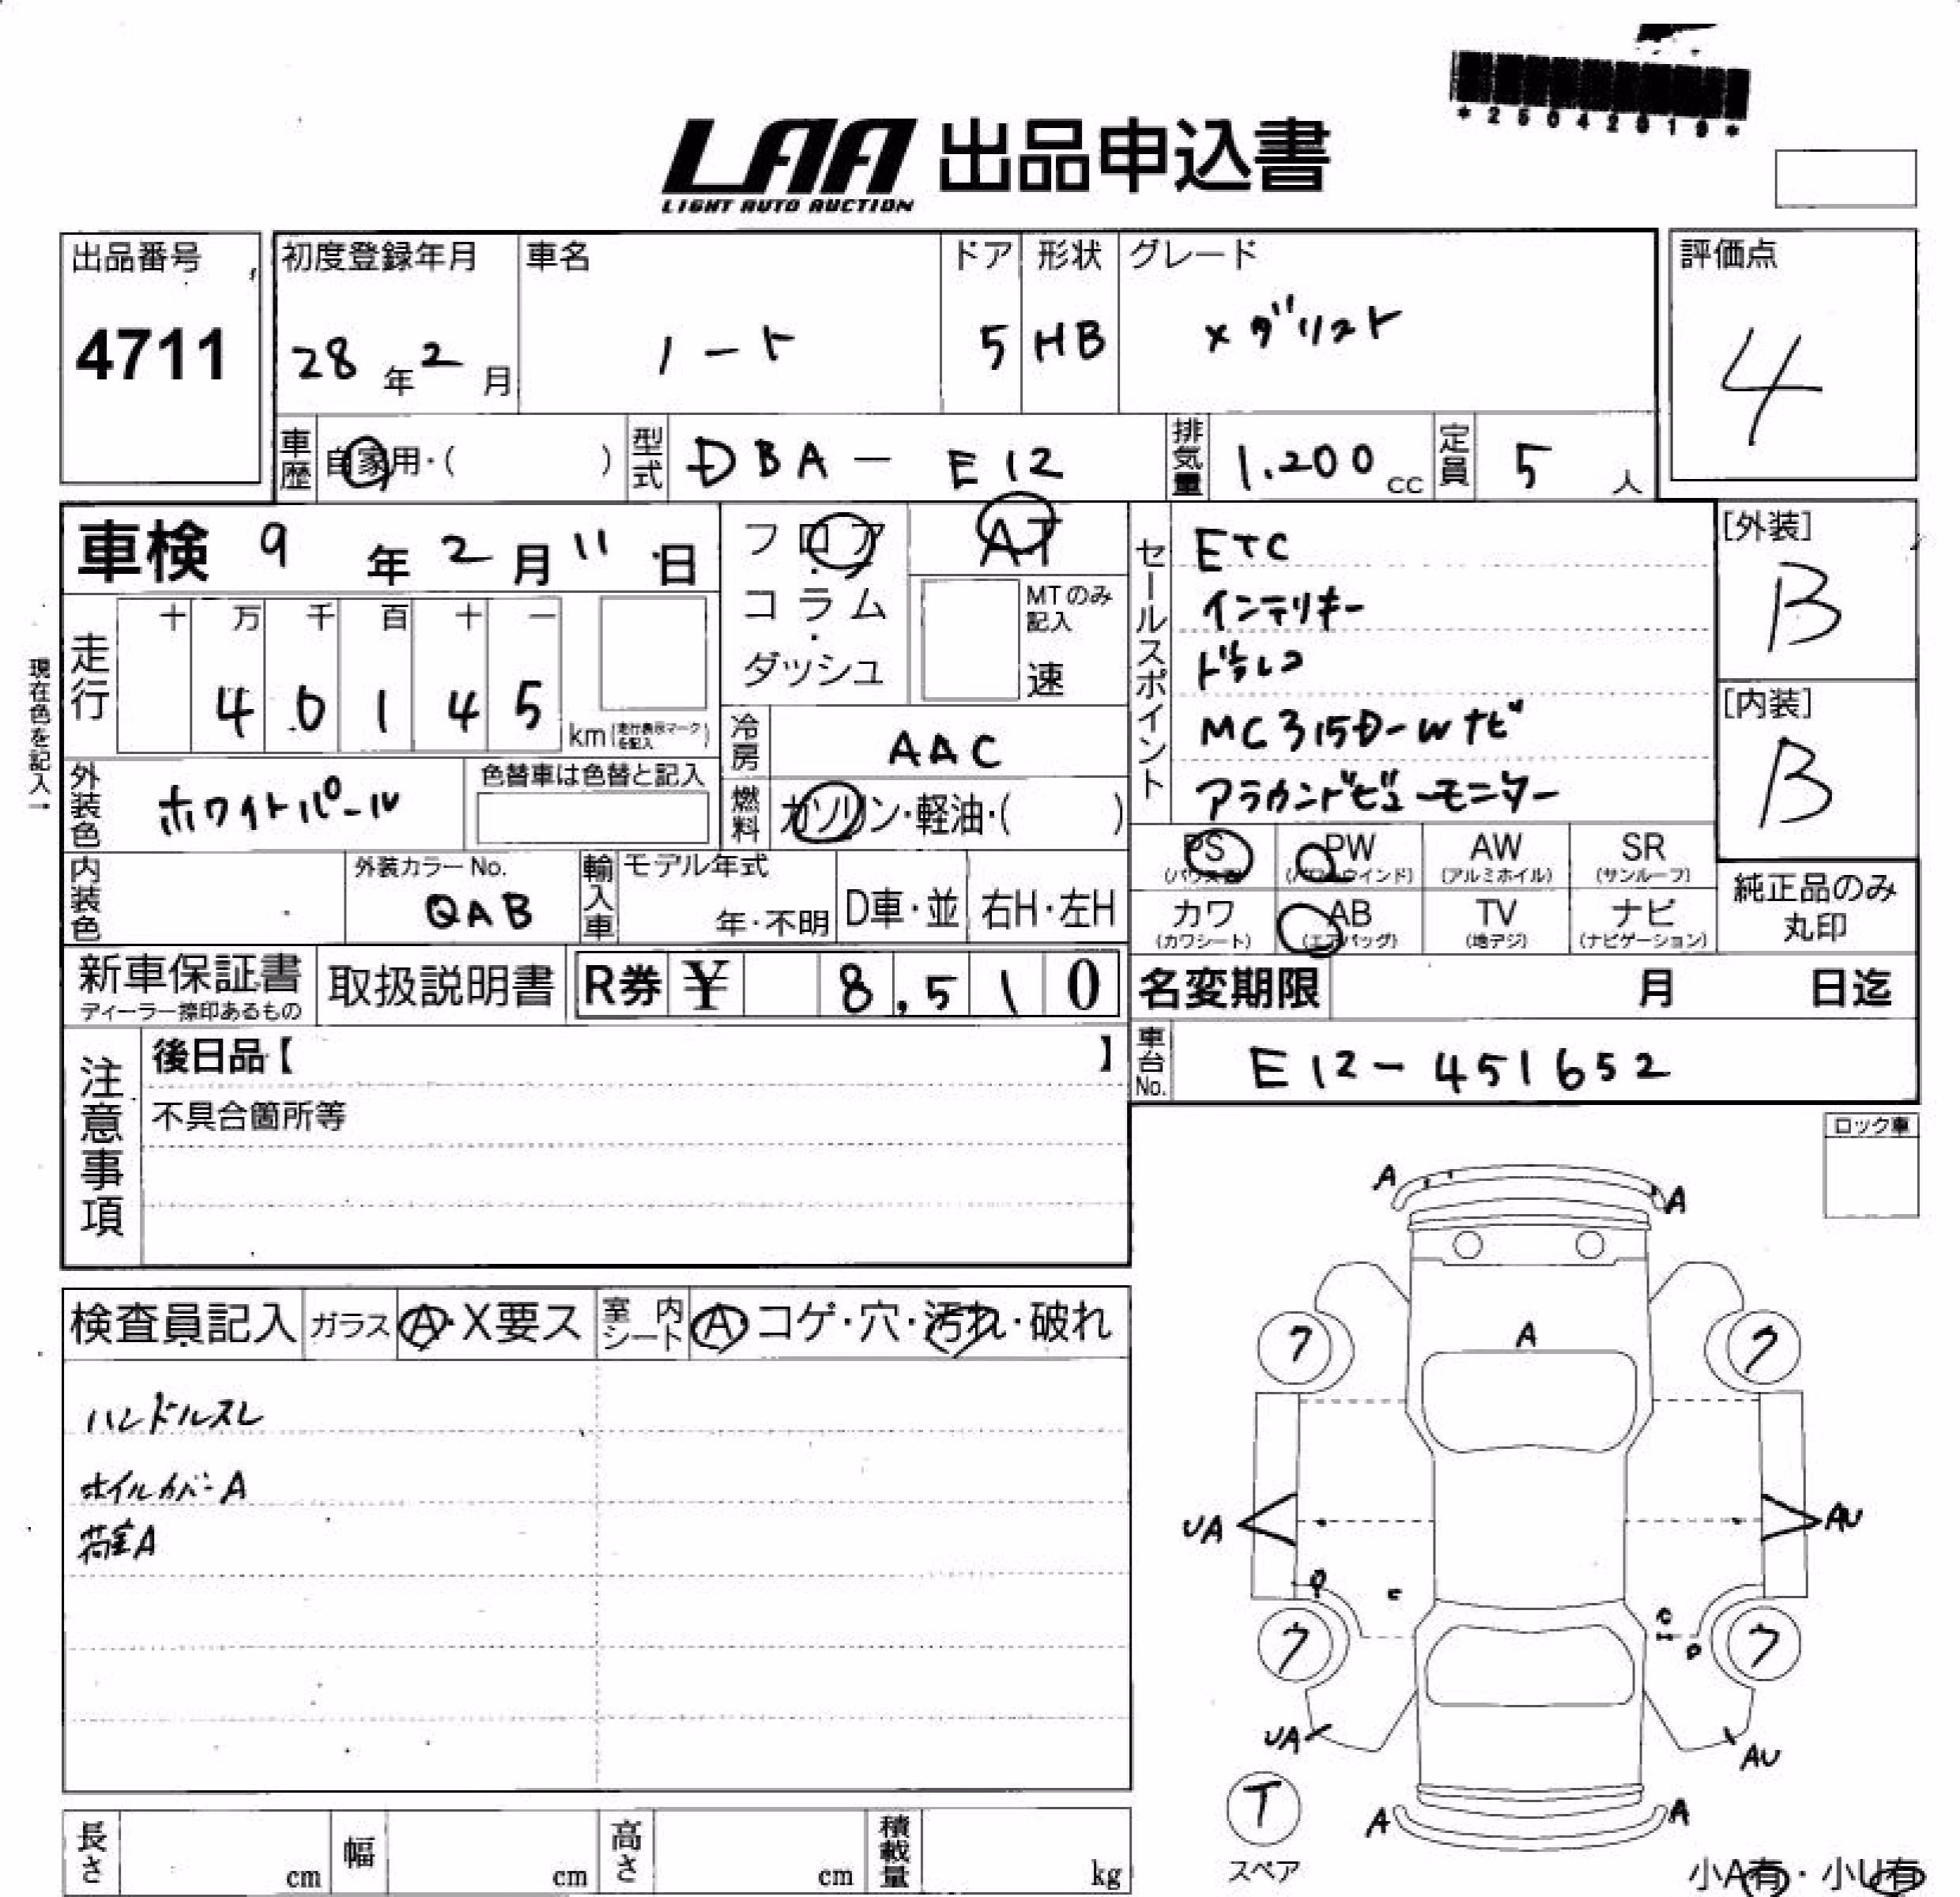 *25042819*
LAA 出品申込書
LIGHT AUTO AUCTION
出品番号 初度登録年月 車名 ドア 形状 グレード 評価点
4711 28年2月 ノート 5 HB メダリスト 4
車歴 自家用・( ) 型式 DBA-E12 排気量 1.200cc 定員 5人
車検 9年2月11日 フロア AT セールスポイント ETC [外装]
コラム MTのみ記入 インテリキー B
ダッシュ 速 ドラレコ
走行 十 万 千 百 十 一
4 0 1 4 5 km (走行表示マークを記入)
現在色を記入→
冷房 AAC MC315D-Wナビ [内装]
アラウンドビューモニター B
外装色 ホワイトパール 色替車は色替と記入 燃料 ガソリン・軽油・( )
PS (パワステ) PW (パワーウインド) AW (アルミホイル) SR (サンルーフ)
内装色 外装カラーNo. QAB 輸入車 モデル年式 年・不明 D車・並 右H・左H
カワ (カワシート) AB (エアバッグ) TV (地デジ) ナビ (ナビゲーション) 純正品のみ丸印
新車保証書 ディーラー捺印あるもの 取扱説明書 R券 ¥ 8,510 名変期限 月 日迄
注意事項 後日品【 】 車台No. E12-451652
不具合箇所等
ロック車
検査員記入 ガラス A・X要ス 室内シート A コゲ・穴・汚れ・破れ
ハンドルスレ
ホイルカバーA
荷室A
A A
A
ワ ワ
UA AU
P C
C P
ワ ワ
UA AU
T
スペア
A A
長さ cm 幅 cm 高さ cm 積載量 kg
小A有・小U有